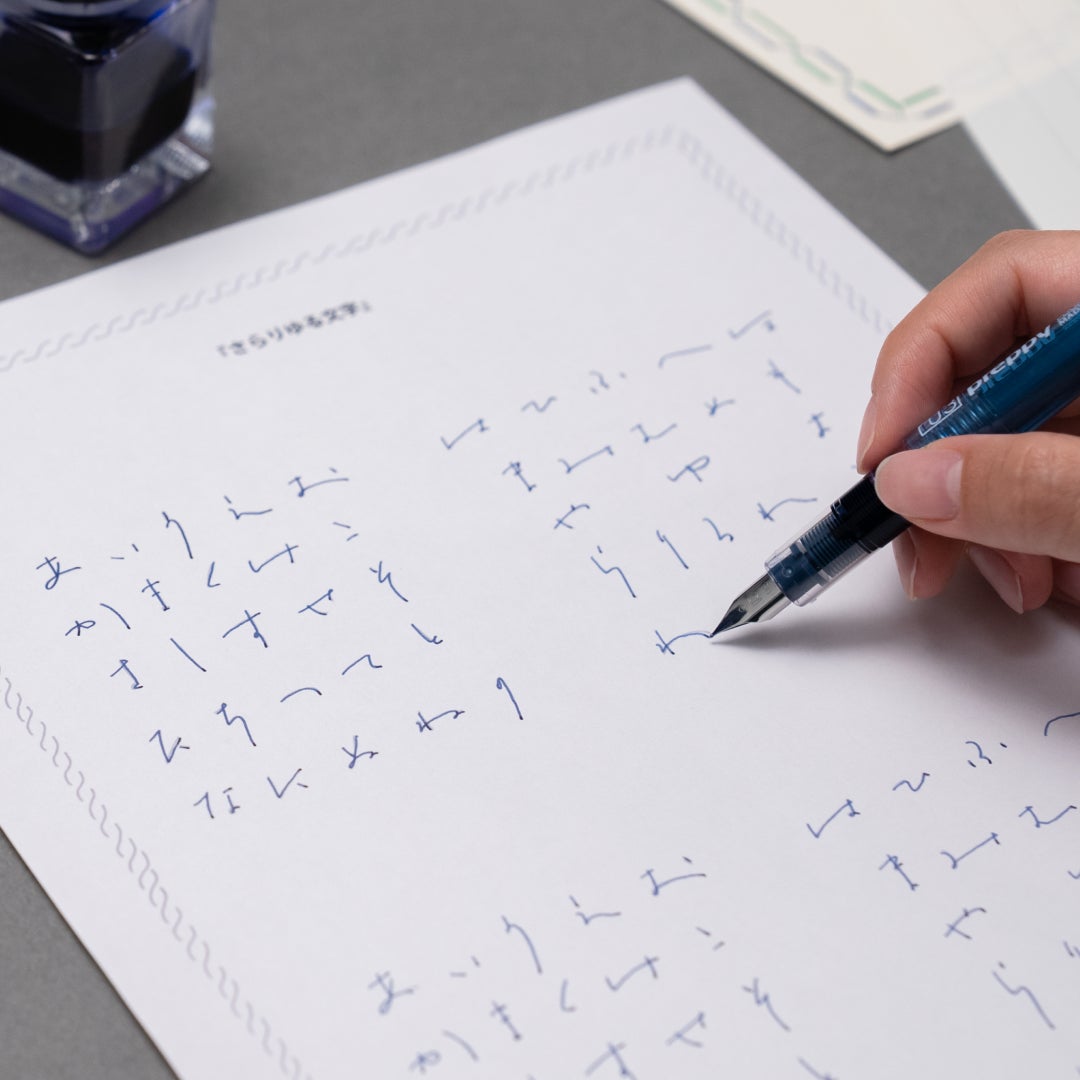 『さらりゆる文字』
あいうえお
かきくけこ
さしすせそ
たちつてと
なにぬねの
はひふへほ
まみむめも
や ゆ よ
らりるれ
わ
preppy
03
はひふ
まみむ
や
ら
あいうえお
かきくけこ
すせそ